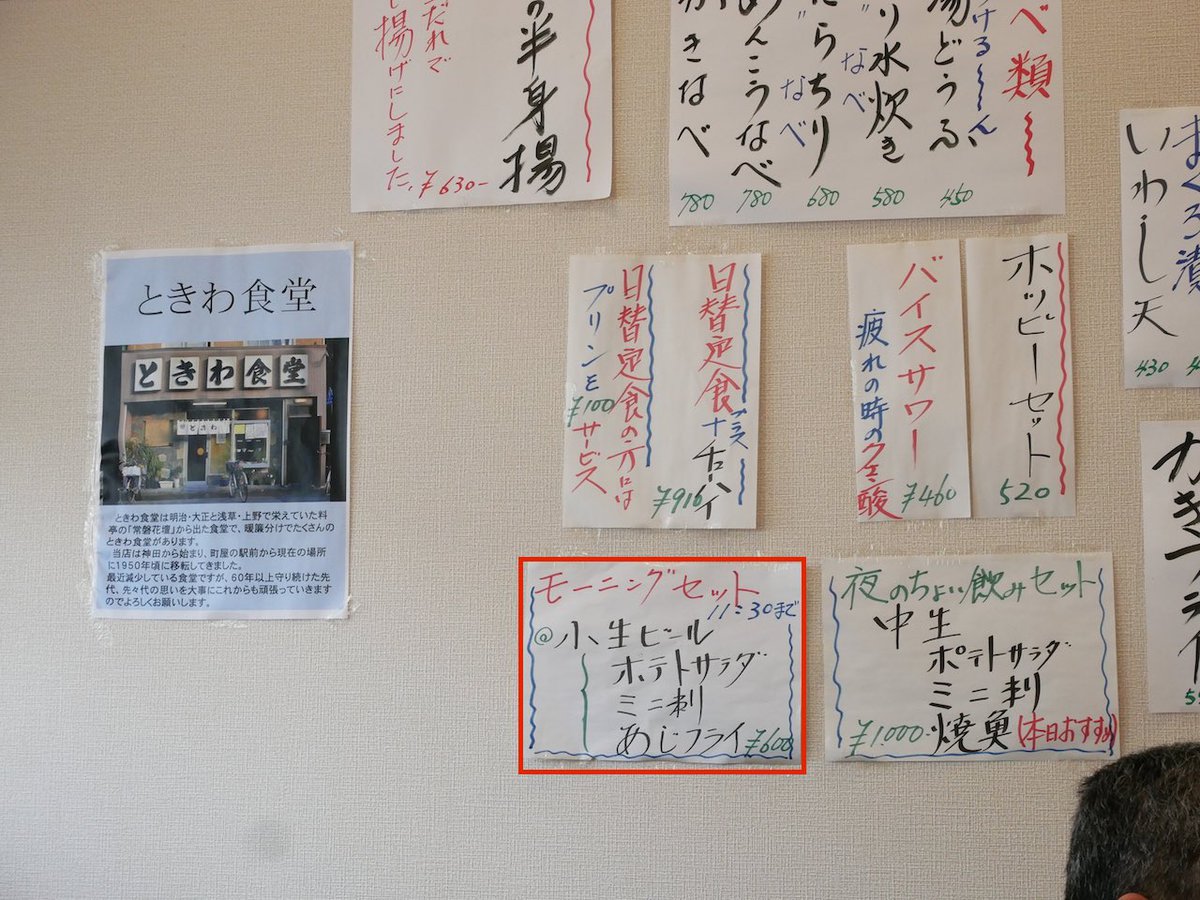 の半身揚
だれで
し揚げにしました。
¥630-
べ類
湯どうふ
り水炊き
なべ
たらちり
なべ
あんこうなべ
かきなべ
450
580
680
780
780
まぐろ漬
いわし天
430
ときわ食堂
ときわ食堂
ときわ
ときわ食堂は明治・大正と浅草・上野で栄えていた料
亭の「常磐花壇」から出た食堂で、暖簾分けでたくさんの
ときわ食堂があります。
当店は神田から始まり、町屋の駅前から現在の場所
に1950年頃に移転してきました。
最近減少している食堂ですが、60年以上守り続けた先
代、先々代の思いを大事にこれからも頑張っていきます
のでよろしくお願いします。
日替定食プラスナチューハイ
¥916
日替定食の方には
プリンを¥100サービス
ホッピーセット
520
バイスサワー
¥460
疲れの時のクエン酸
モーニングセット
11:30まで
@小生ビール
ポテトサラダ
ミニ刺
あじフライ ¥600
夜のちょい飲みセット
中生
ポテトサラダ
ミニ刺
焼魚(本日おすすめ)
¥1.000-